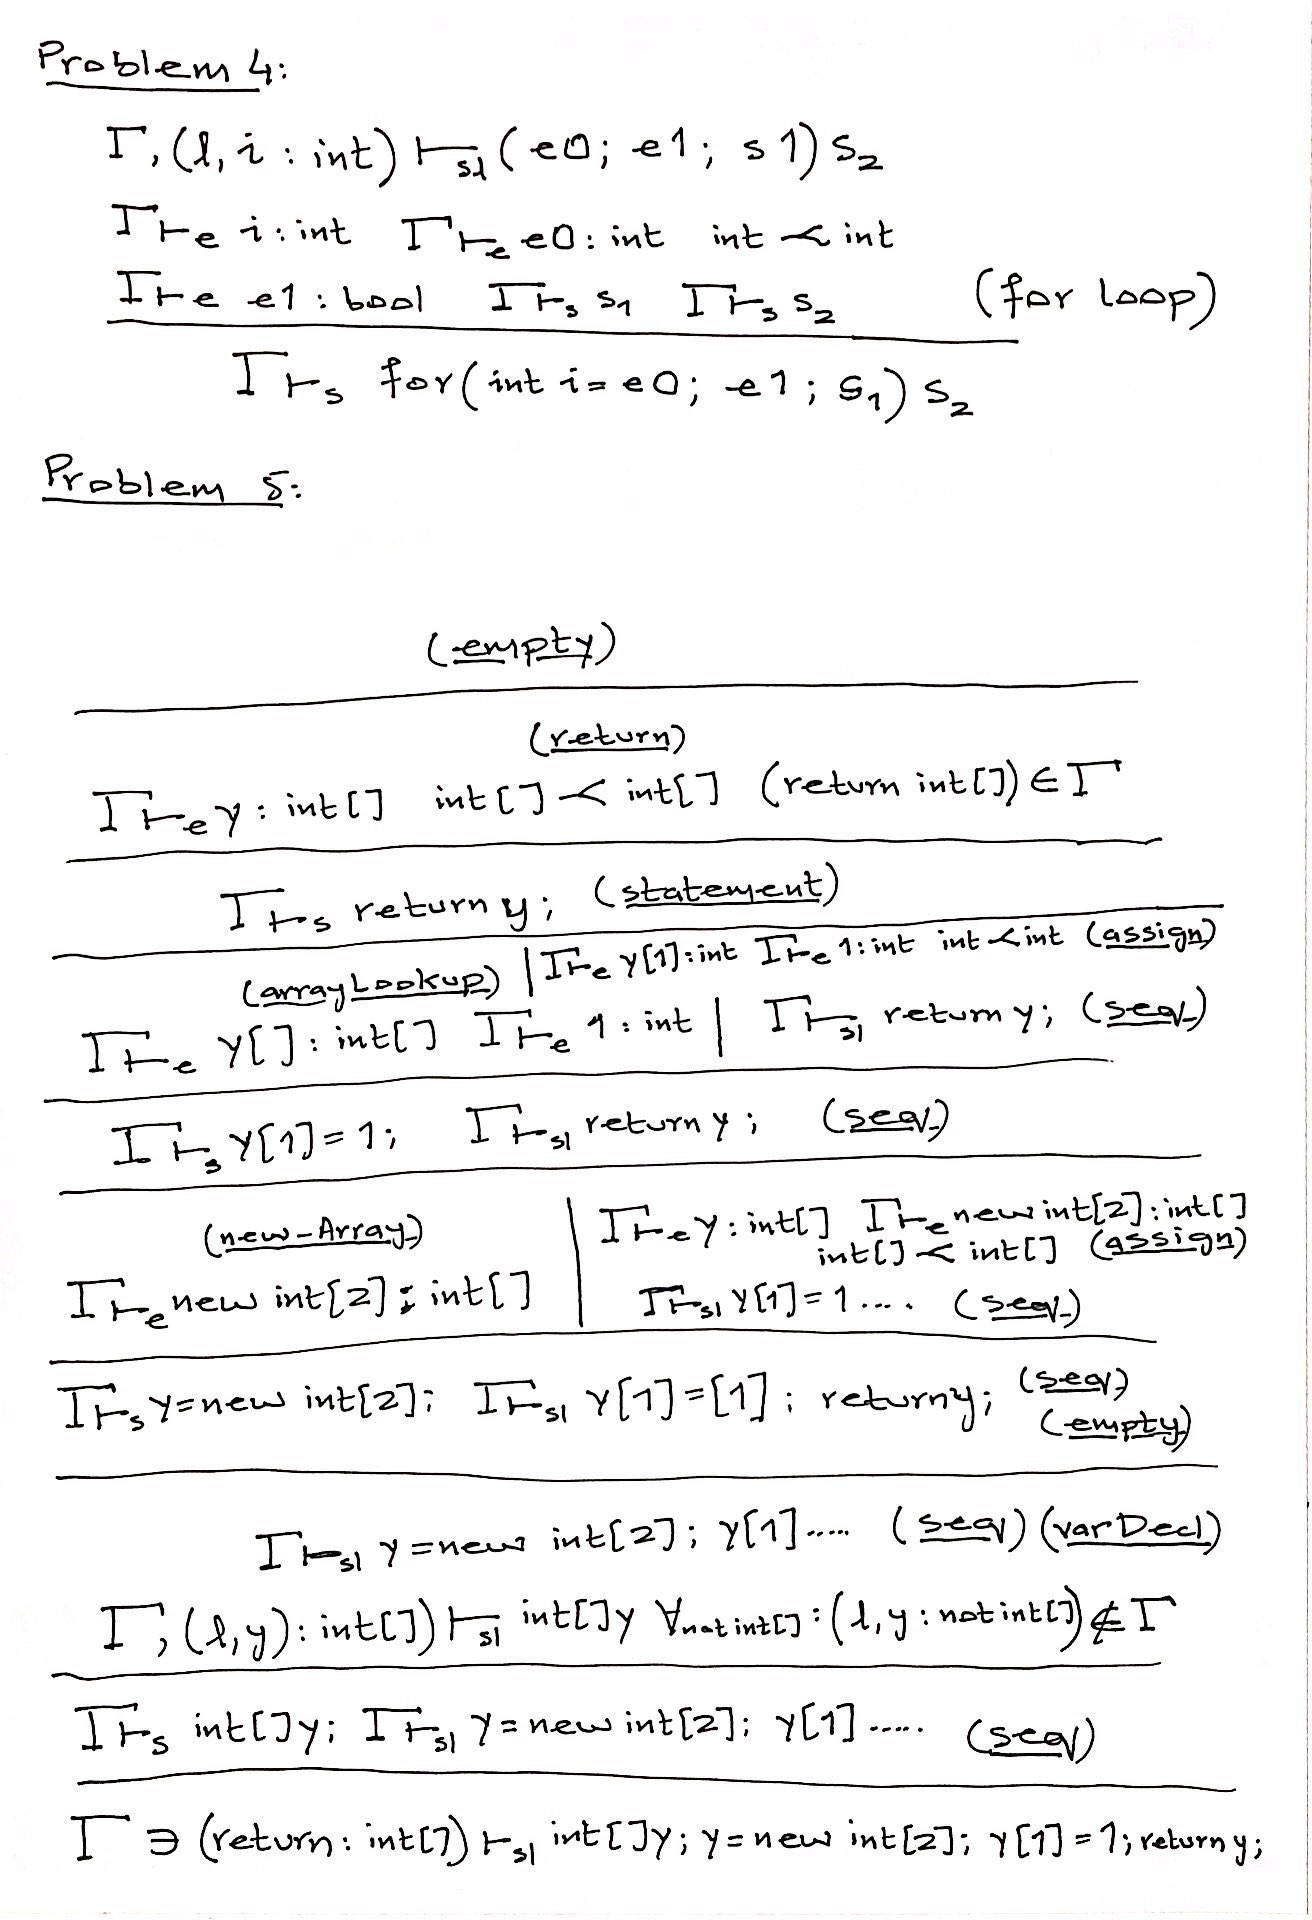 Problem 4:
Γ, (l, i : int) ⊢sl (e0; e1; s1) s₂
Γ ⊢e i : int Γ ⊢e e0 : int int ≺ int
Γ ⊢e e1 : bool Γ ⊢s s₁ Γ ⊢s s₂ (for loop)
Γ ⊢s for(int i = e0; e1; s₁) s₂
Problem 5:
(empty)
(return)
Γ ⊢e y : int[] int[] ≺ int[] (return int[]) ∈ Γ
Γ ⊢s return y; (statement)
(arrayLookup) | Γ ⊢e y[1] : int Γ ⊢e 1 : int int ≺ int (assign)
Γ ⊢e y[] : int[] Γ ⊢e 1 : int | Γ ⊢sl return y; (seq)
Γ ⊢s y[1] = 1; Γ ⊢sl return y; (seq)
(new-Array) | Γ ⊢e y : int[] Γ ⊢e new int[2] : int[]
int[] ≺ int[] (assign)
Γ ⊢e new int[2] : int[] | Γ ⊢sl y[1] = 1 .... (seq)
Γ ⊢s y = new int[2]; Γ ⊢sl y[1] = [1]; return y; (seq)
(empty)
Γ ⊢sl y = new int[2]; y[1] ..... (seq) (varDecl)
Γ, (l, y) : int[]) ⊢sl int[] y ∀not int[] : (l, y : not int[]) ∉ Γ
Γ ⊢s int[] y; Γ ⊢sl y = new int[2]; y[1] ..... (seq)
Γ ∋ (return : int[]) ⊢sl int[] y; y = new int[2]; y[1] = 1; return y;